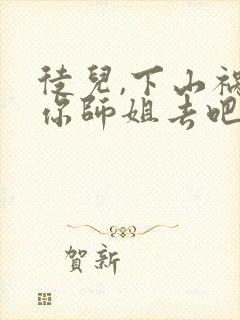 徒兒,下山禍
你師姐去吧
賀新